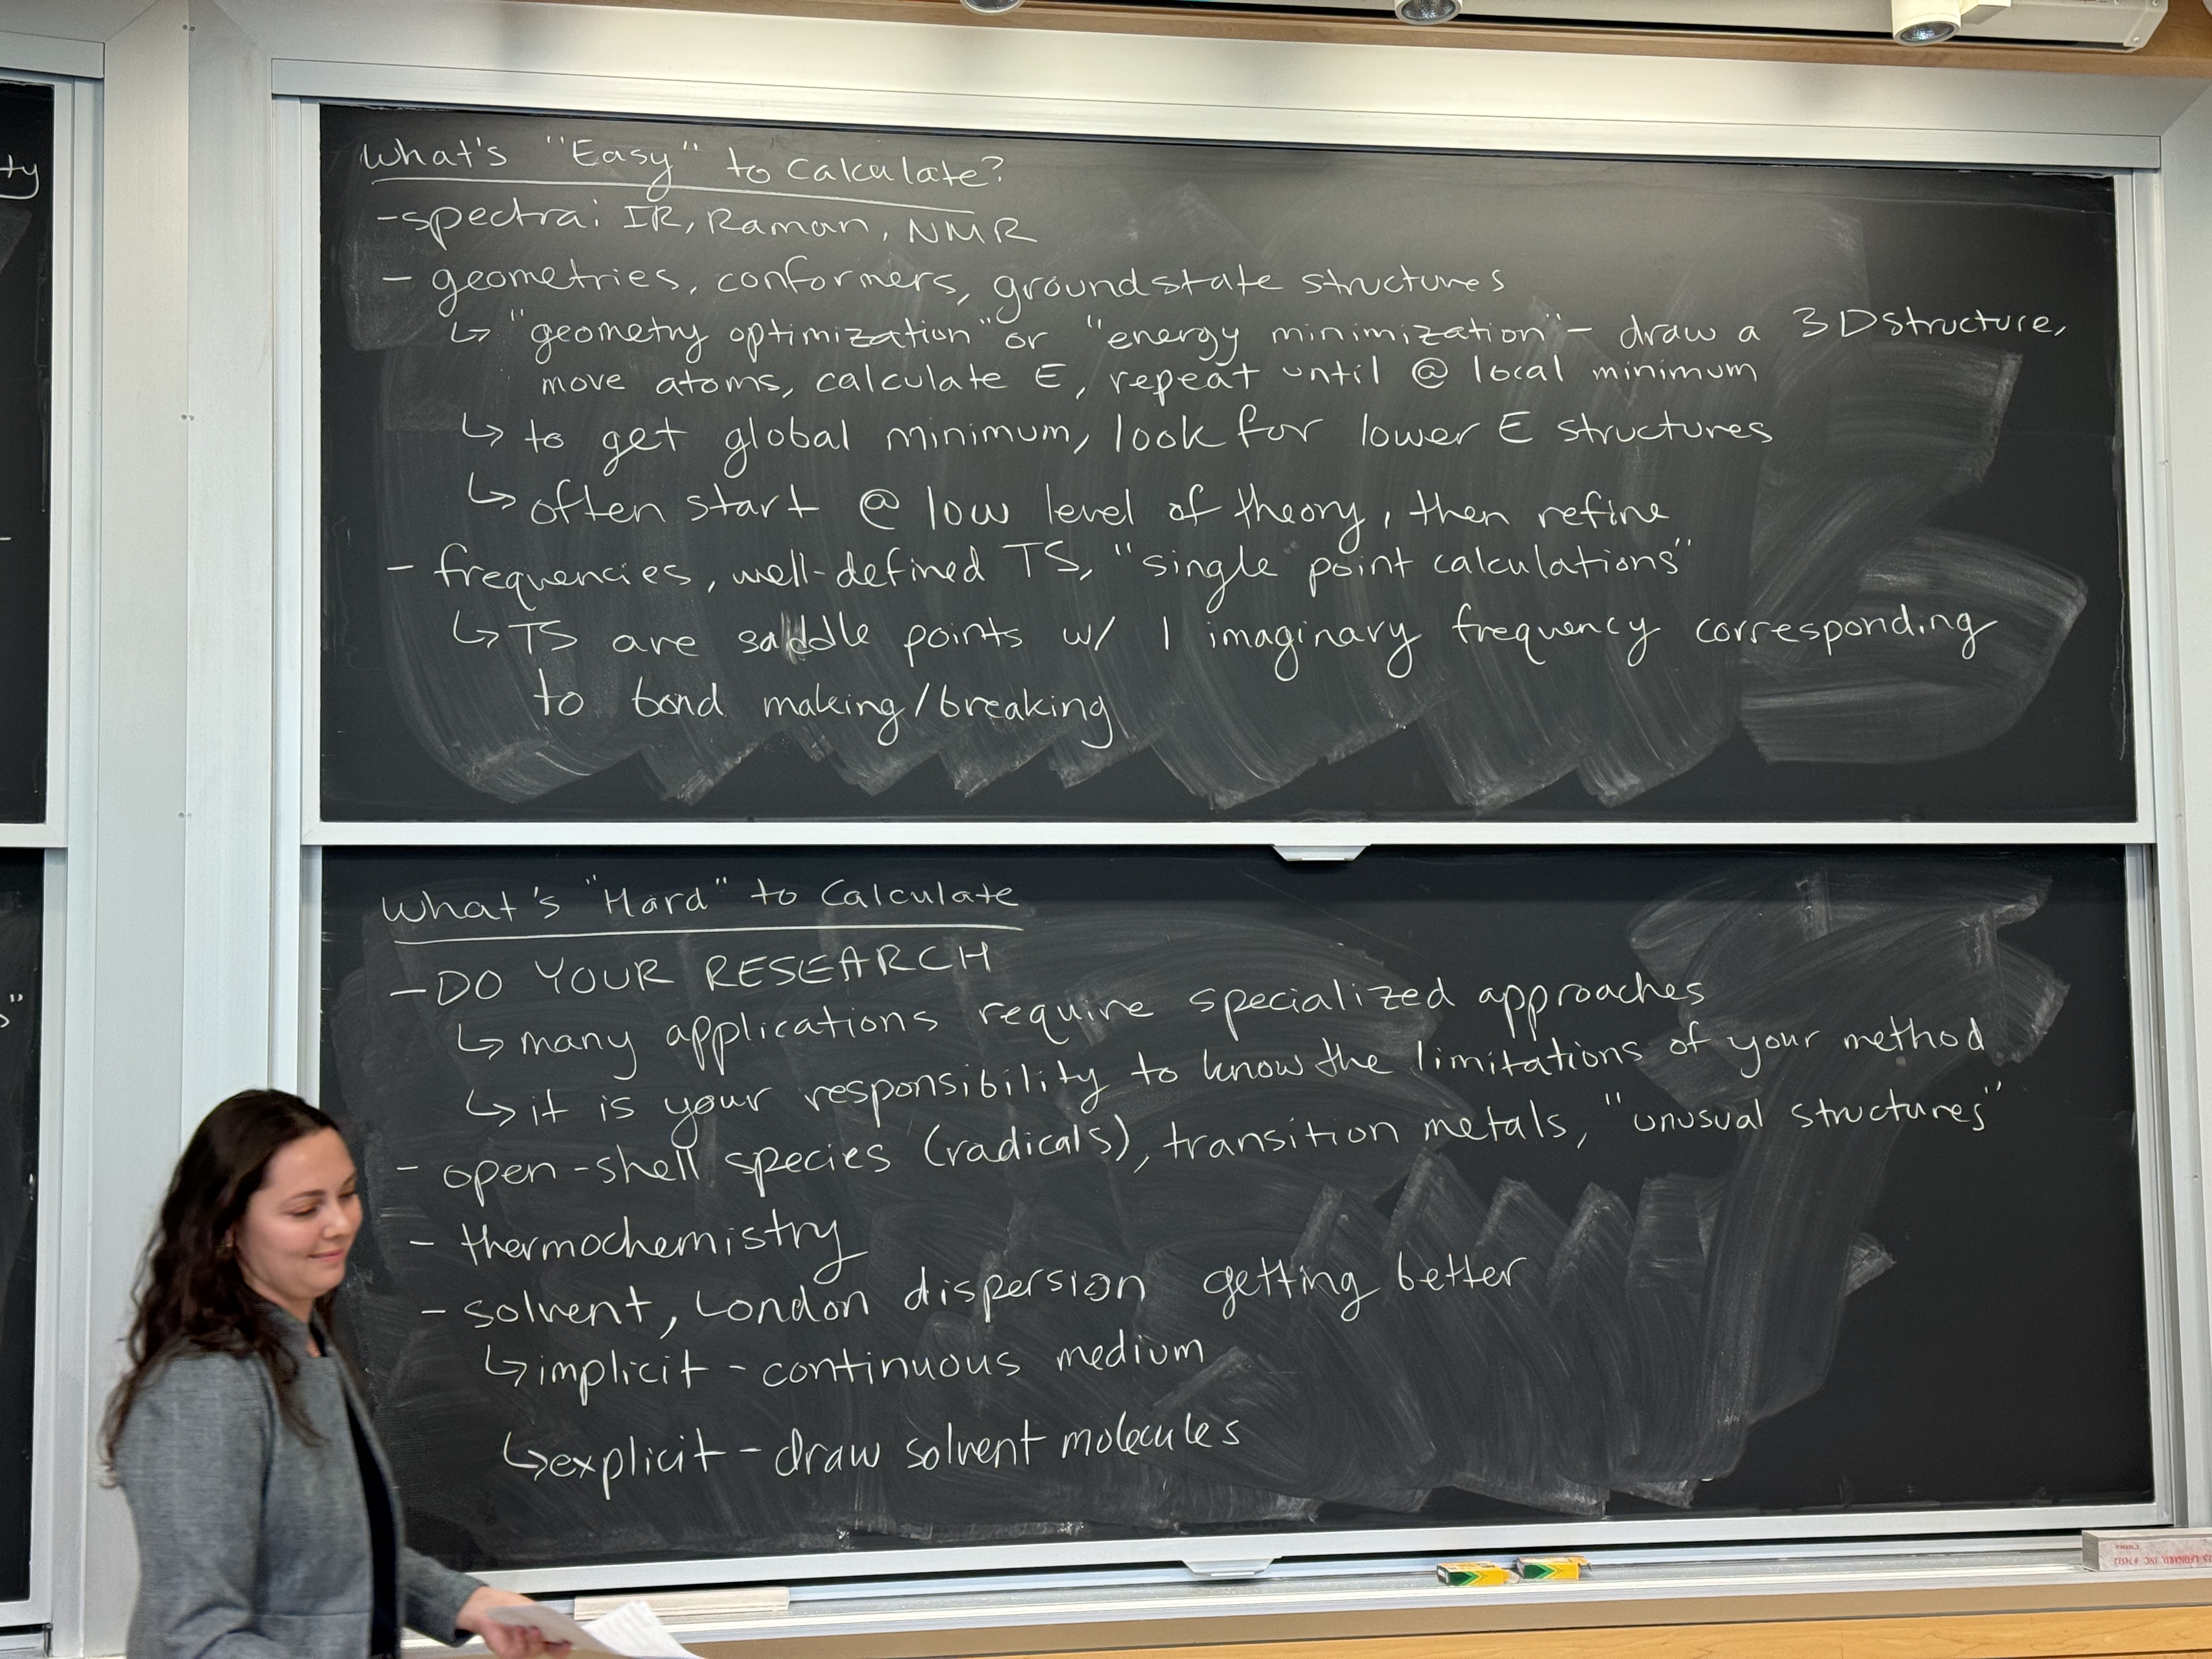 What's "Easy" to Calculate?
-spectra: IR, Raman, NMR
- geometries, conformers, ground state structures
↳ "geometry optimization" or "energy minimization" - draw a 3D structure,
move atoms, calculate E, repeat until @ local minimum
↳ to get global minimum, look for lower E structures
↳ often start @ low level of theory, then refine
- frequencies, well-defined TS, "single point calculations"
↳ TS are saddle points w/ 1 imaginary frequency corresponding
to bond making/breaking
What's "Hard" to Calculate
- DO YOUR RESEARCH
↳ many applications require specialized approaches
↳ it is your responsibility to know the limitations of your method
- open-shell species (radicals), transition metals, "unusual structures"
- thermochemistry
- solvent, London dispersion getting better
↳ implicit - continuous medium
↳ explicit - draw solvent molecules